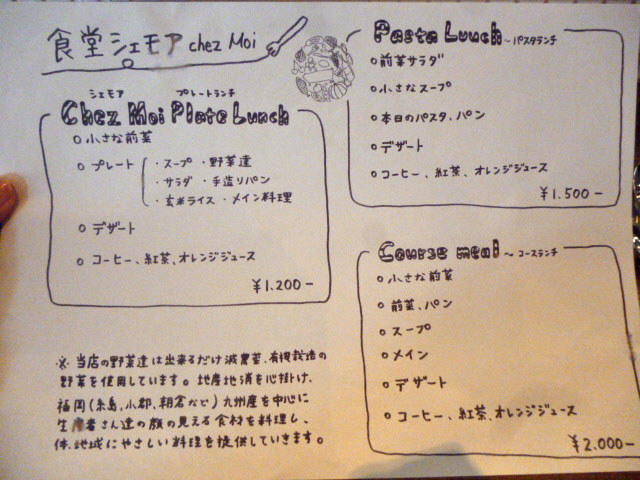 食堂シェモア chez Moi
シェモア プレートランチ
Chez Moi Plate Lunch
○小さな前菜
○プレート
・スープ ・野菜達
・サラダ ・手造りパン
・玄米ライス ・メイン料理
○デザート
○コーヒー、紅茶、オレンジジュース
¥1.200-
Pasta Lunch ~パスタランチ
○前菜サラダ
○小さなスープ
○本日のパスタ、パン
○デザート
○コーヒー、紅茶、オレンジジュース
¥1.500-
Course meal ~コースランチ
○小さな前菜
○前菜、パン
○スープ
○メイン
○デザート
○コーヒー、紅茶、オレンジジュース
¥2.000-
※当店の野菜達は出来るだけ減農薬、有機栽培の
野菜を使用しています。地産地消を心掛け、
福岡(糸島、小郡、朝倉など)九州産を中心に
生産者さん達の顔の見える食材を料理し、
体、地域にやさしい料理を提供していきます。